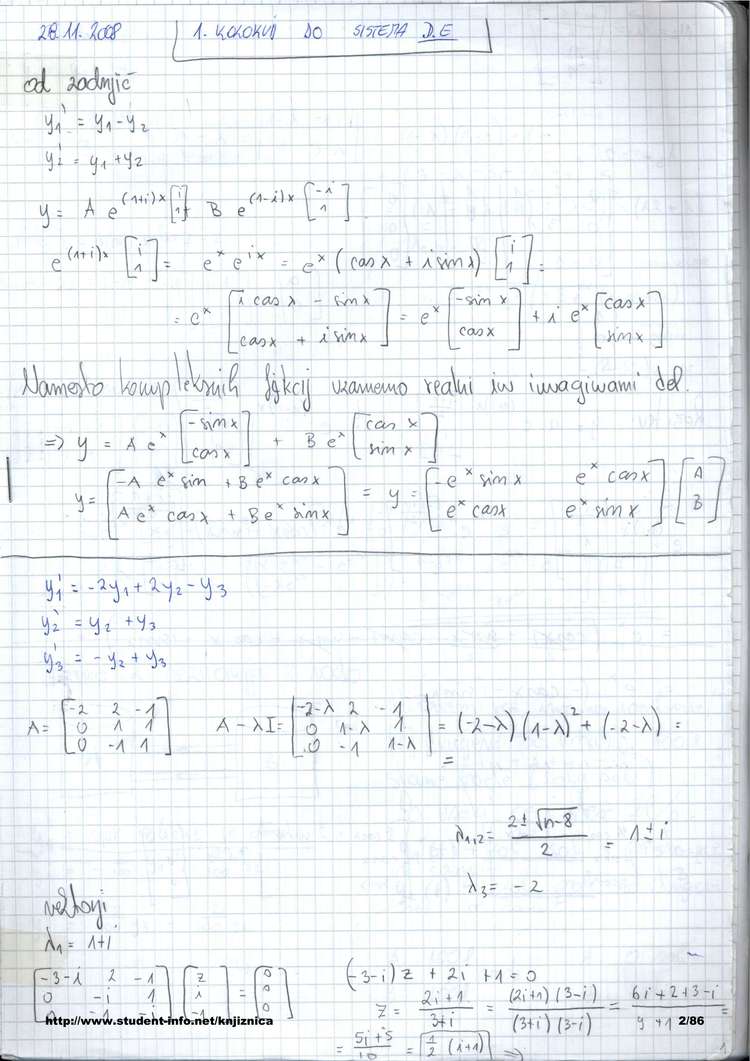 28.11.2008 1. KOLOKVIJ DO SISTEMA D.E
od zadnjič
y₁' = y₁ - y₂
y₂' = y₁ + y₂
y = A e^(1+i)x [i; 1] + B e^(1-i)x [-i; 1]
e^(1+i)x [i; 1] = e^x e^ix = e^x (cosx + i sinx) [i; 1] =
= e^x [i cosx - sinx; cosx + i sinx] = e^x [-sinx; cosx] + i e^x [cosx; sinx]
Namesto kompleksnih fgkcij vzamemo realni in imaginarni del.
=> y = A e^x [-sinx; cosx] + B e^x [cosx; sinx]
y = [-A e^x sin + B e^x cosx; A e^x cosx + B e^x sinx] = y = [-e^x sinx e^x cosx; e^x cosx e^x sinx] [A; B]
y₁' = -2y₁ + 2y₂ - y₃
y₂' = y₂ + y₃
y₃' = -y₂ + y₃
A = [-2 2 -1; 0 1 1; 0 -1 1] A - λI = |-2-λ 2 -1; 0 1-λ 1; 0 -1 1-λ| = (-2-λ)(1-λ)² + (-2-λ) =
=
λ₁,₂ = (2 ± √(4-8))/2 = 1 ± i
λ₃ = -2
vektorji
λ₁ = 1+i
[-3-i 2 -1; 0 -i 1; 0 -1 -i] [z; i; 1] = [0; 0; 0] (-3-i)z + 2i + 1 = 0
z = (2i+1)/(3+i) = (2i+1)(3-i)/(3+i)(3-i) = (6i+2+3-i)/(9+1) =
= (5i+5)/10 = 1/2 (i+1) =>
http://www.student-info.net/knjiznica 2/86